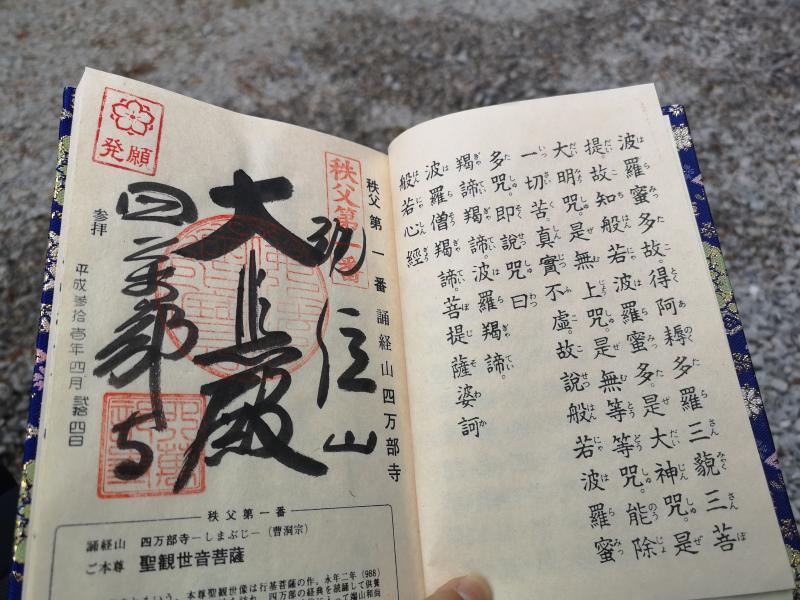 波羅蜜多故。得阿耨多羅三藐三菩
提。故知般若波羅蜜多。是大神咒。是
大明咒。是無上咒。是無等等咒。能除
一切苦。真實不虛。故說般若波羅蜜
多咒。即說咒曰
羯諦。羯諦。波羅羯諦。
波羅僧羯諦。菩提薩婆訶
般若心經
秩父第一番 誦経山四万部寺
秩父第一番
誦経山
大悲殿
四万部寺
発願
参拝 平成参拾壱年四月 弐拾四日
秩父第一番
誦経山 四万部寺―しまぶじ―(曹洞宗)
ご本尊 聖観世音菩薩
という。本尊聖観世像は行基菩薩の作。永年二年(988)
四万部の経典を読誦して供養
端山和尚